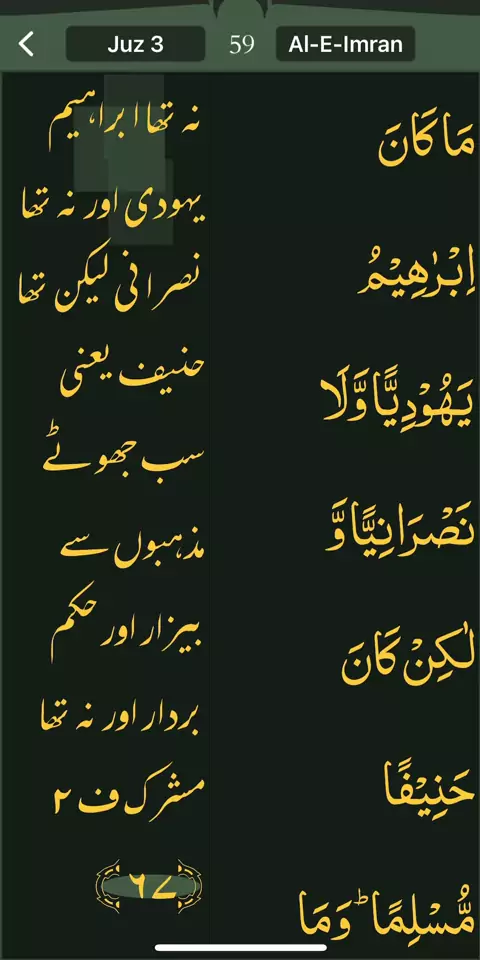 Juz 3 59 Al-E-Imran
مَا كَانَ
اِبْرٰهِيْمُ
يَهُوْدِيًّا وَّلَا
نَصْرَانِيًّا وَّ
لٰكِنْ كَانَ
حَنِيْفًا
مُّسْلِمًا ؕ وَمَا
نہ تھا ابراہیم
یہودی اور نہ تھا
نصرانی لیکن تھا
حنیف یعنی
سب جھوٹے
مذہبوں سے
بیزار اور حکم
بردار اور نہ تھا
مشرک ف ۲
٦٧